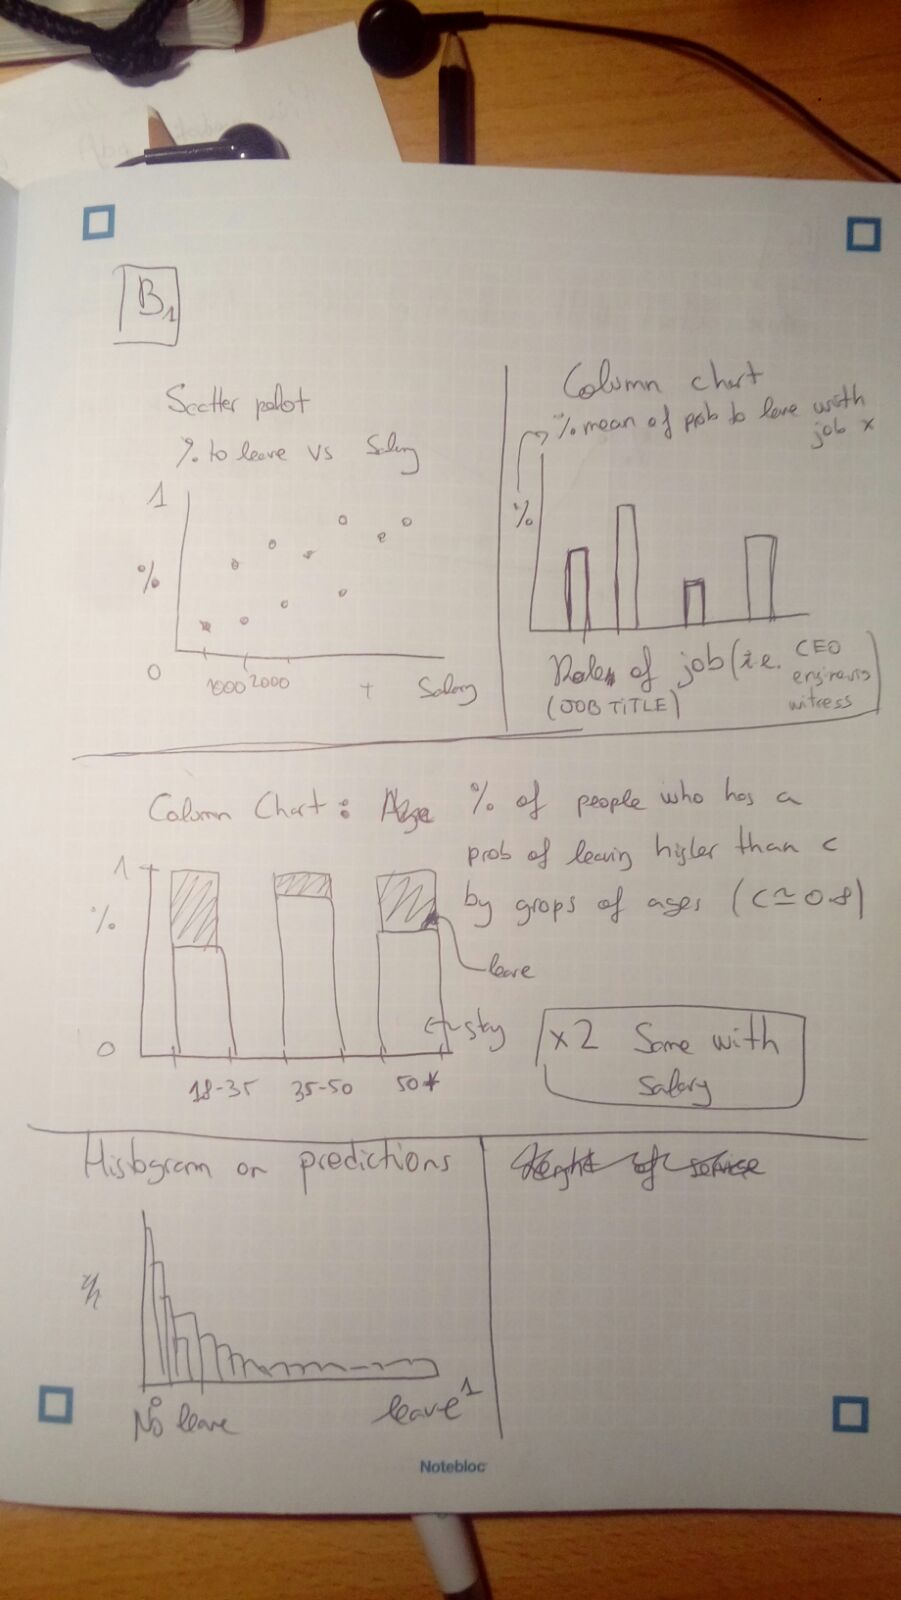 B1
Scatter polot
% to leave vs Salary
1
%
0
1000 2000 + Salary
Column chart
% mean of prob to leave with
job x
%
Roles of job (i.e. CEO
(JOB TITLE)
Column Chart: Age % of people who has a
prob of leaving higler than c
by grops of ages (c≃0.8)
1
%
0
leave
stay
18-35 35-50 50+
x2 Same with
Salary
Histogram on predictions
0 1
No leave leave
Notebloc